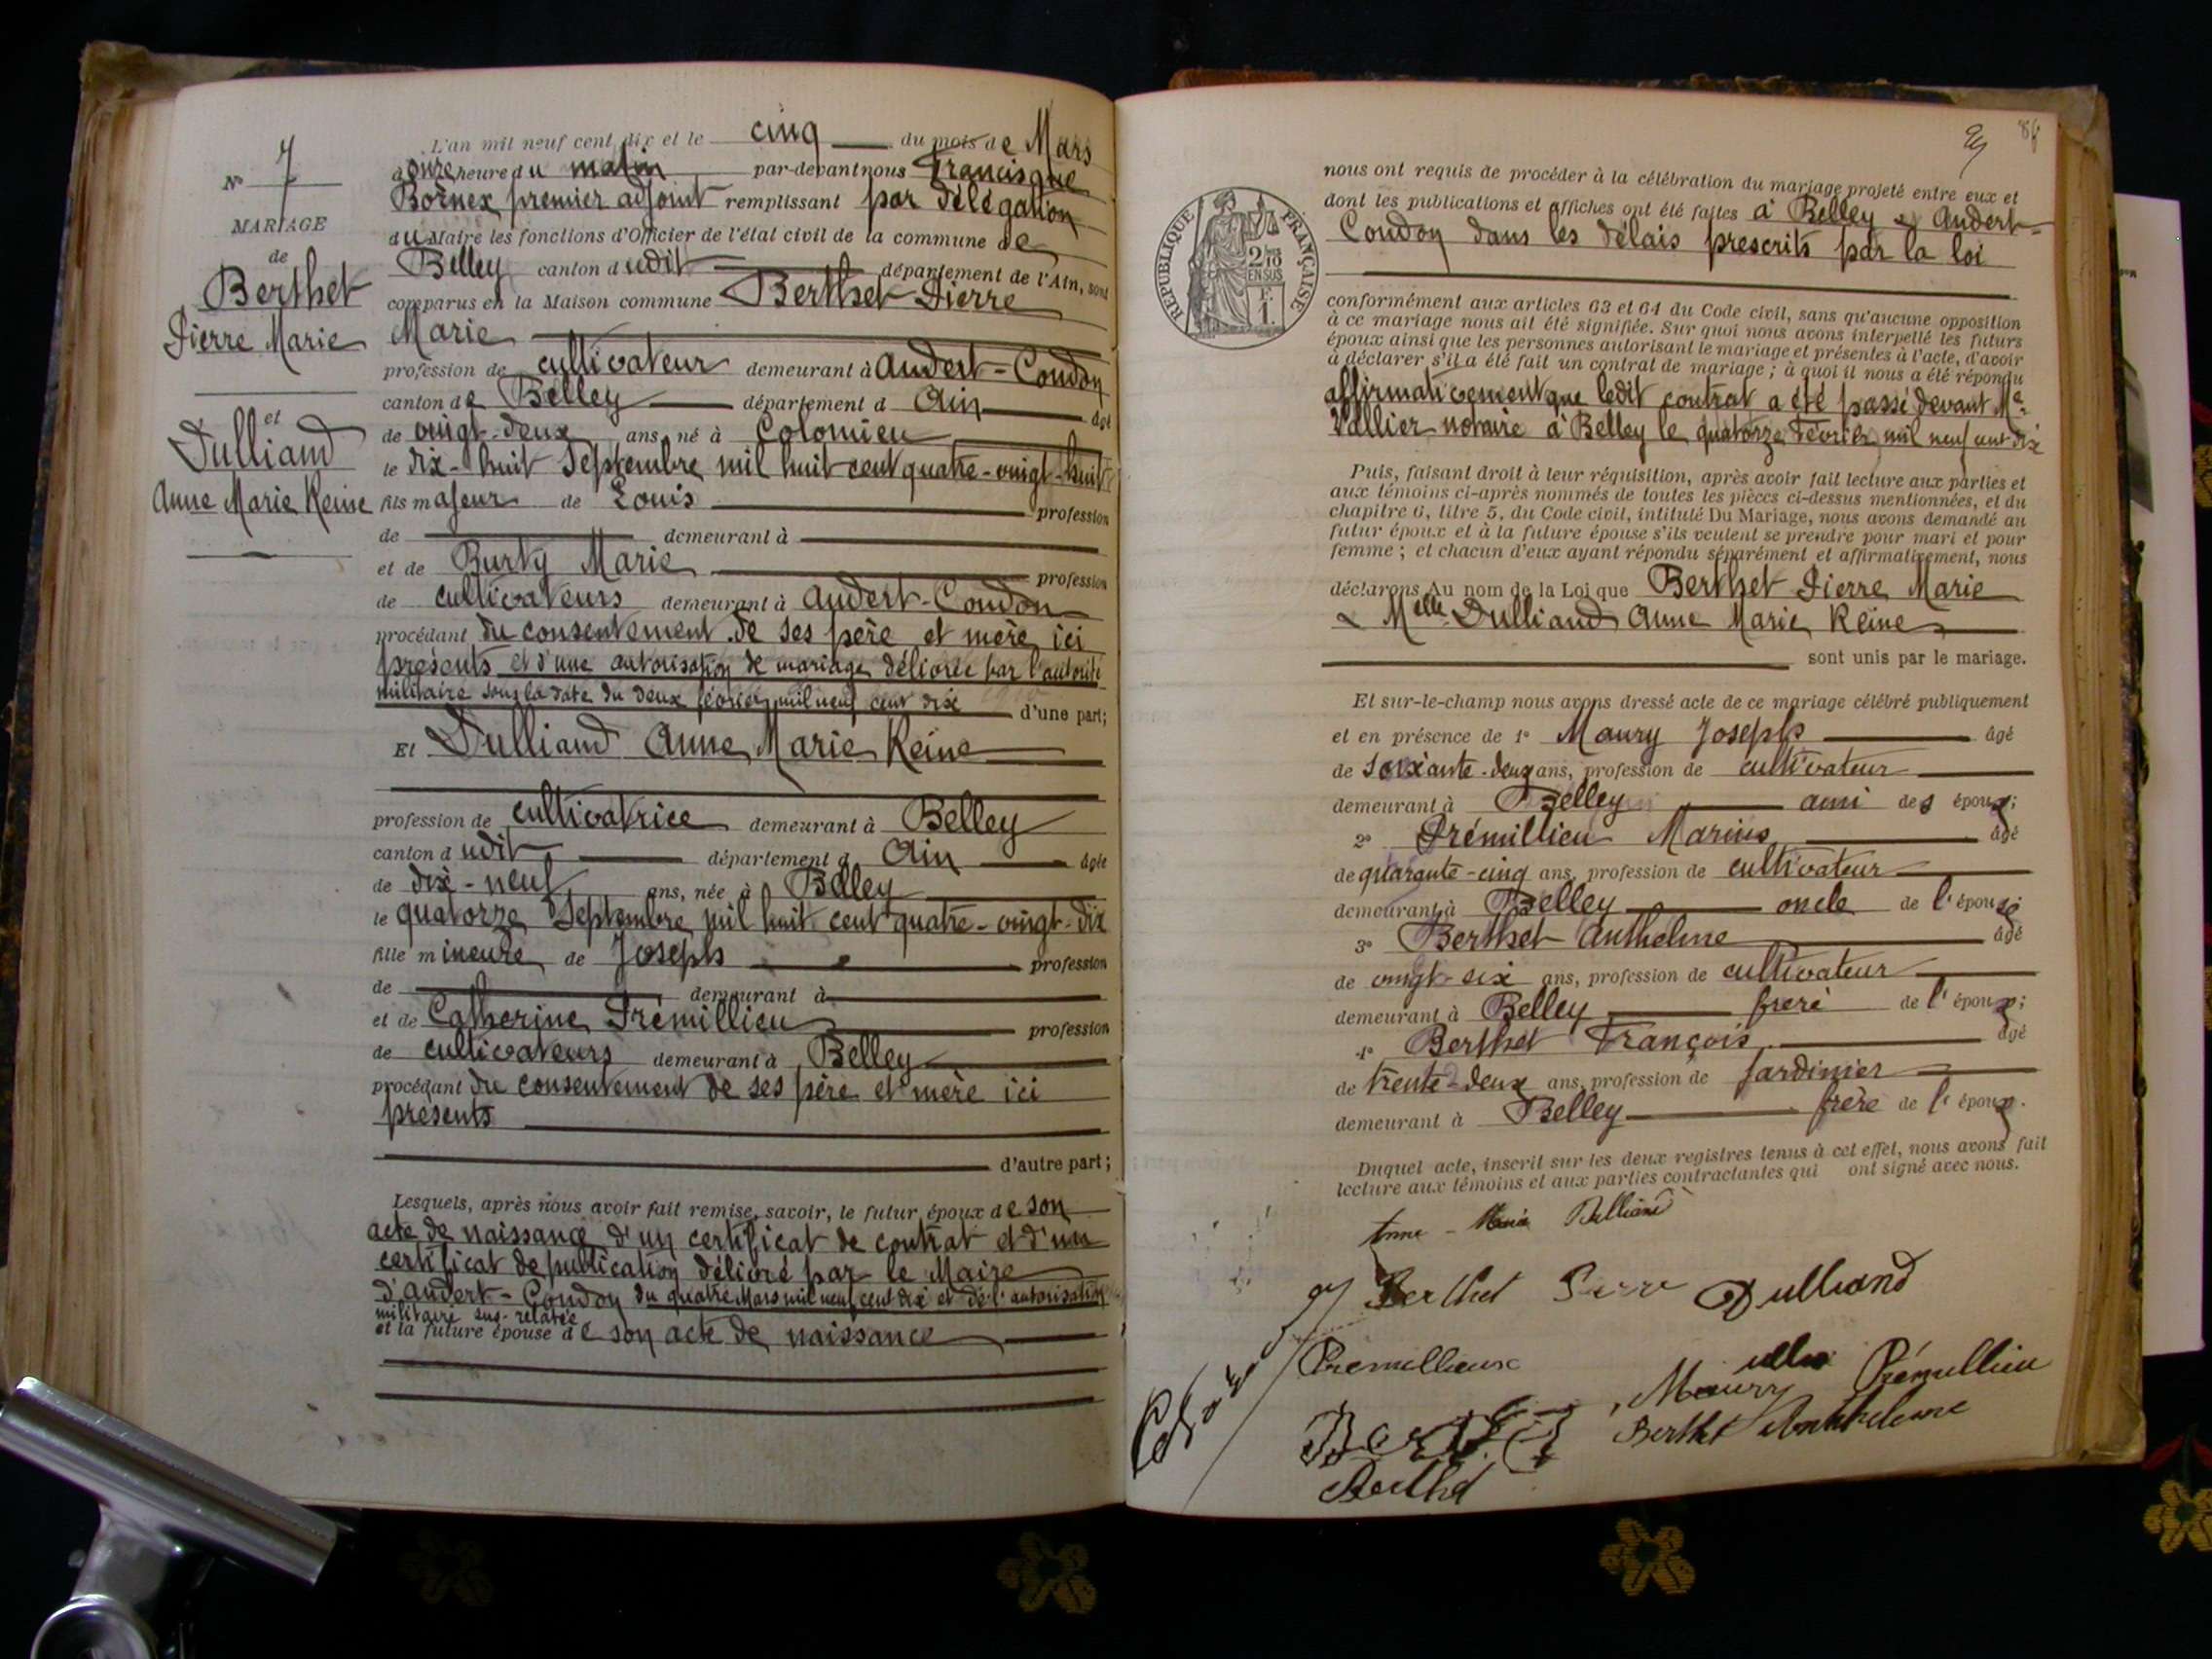 N° 7
MARIAGE
de
Berthet
Pierre Marie
et
Dulliand
Anne Marie Reine
L'an mil neuf cent dix et le cinq du mois de Mars
à onze heure du matin par-devant nous Francisque
Bornex premier adjoint remplissant par délégation
du Maire les fonctions d'Officier de l'état civil de la commune de
Belley canton dudit département de l'Ain, sont
comparus en la Maison commune Berthet Pierre
Marie
profession de cultivateur demeurant à Andert-Condon
canton de Belley département d Ain âgé
de vingt-deux ans, né à Colomieu
le dix-huit Septembre mil huit cent quatre-vingt-huit
fils majeur de Louis profession
de demeurant à
et de Burty Marie profession
de cultivateurs demeurant à Andert-Condon
procédant du consentement de ses père et mère ici
présents et d'une autorisation de mariage délivrée par l'autorité
militaire sous la date du deux février mil neuf cent dix d'une part;
Et Dulliand Anne Marie Reine
profession de cultivatrice demeurant à Belley
canton dudit département d Ain âgée
de dix-neuf ans, née à Belley
le quatorze Septembre mil huit cent quatre-vingt-dix
fille mineure de Joseph profession
de demeurant à
et de Catherine Prémillieu profession
de cultivateurs demeurant à Belley
procédant du consentement de ses père et mère ici
présents
d'autre part;
Lesquels, après nous avoir fait remise, savoir, le futur époux de son
acte de naissance d'un certificat de contrat et d'un
certificat de publication délivré par le Maire
d'Andert-Condon du quatre Mars mil neuf cent dix et de l'autorisation
militaire sus-relatée
et la future épouse de son acte de naissance
86
RÉPUBLIQUE FRANÇAISE
2/10
EN SUS
F.
1.
nous ont requis de procéder à la célébration du mariage projeté entre eux et
dont les publications et affiches ont été faites à Belley & Andert-
Condon dans les délais prescrits par la loi
conformément aux articles 63 et 64 du Code civil, sans qu'aucune opposition
à ce mariage nous ait été signifiée. Sur quoi nous avons interpellé les futurs
époux ainsi que les personnes autorisant le mariage et présentes à l'acte, d'avoir
à déclarer s'il a été fait un contrat de mariage; à quoi il nous a été répondu
affirmativement que ledit contrat a été passé devant Me
Vallier notaire à Belley le quatorze Février mil neuf cent dix
Puis, faisant droit à leur réquisition, après avoir fait lecture aux parties et
aux témoins ci-après nommés de toutes les pièces ci-dessus mentionnées, et du
chapitre 6, titre 5, du Code civil, intitulé Du Mariage, nous avons demandé au
futur époux et à la future épouse s'ils veulent se prendre pour mari et pour
femme; et chacun d'eux ayant répondu séparément et affirmativement, nous
déclarons Au nom de la Loi que Berthet Pierre Marie
& Melle Dulliand Anne Marie Reine
sont unis par le mariage.
Et sur-le-champ nous avons dressé acte de ce mariage célébré publiquement
et en présence de 1° Maury Joseph âgé
de soixante-deux ans, profession de cultivateur
demeurant à Belley ami des époux;
2° Prémillieu Marius âgé
de quarante-cinq ans, profession de cultivateur
demeurant à Belley oncle de l'épouse
3° Berthet Anthelme âgé
de vingt-six ans, profession de cultivateur
demeurant à Belley frère de l'époux;
4° Berthet François âgé
de trente-deux ans, profession de jardinier
demeurant à Belley frère de l'époux.
Duquel acte, inscrit sur les deux registres tenus à cet effet, nous avons fait
lecture aux témoins et aux parties contractantes qui ont signé avec nous.
Anne-Marie Dulliand
Berthet Pierre Dulliand
Premillieux
Maury Prémillieu
Berthet Anthelme
Berthet